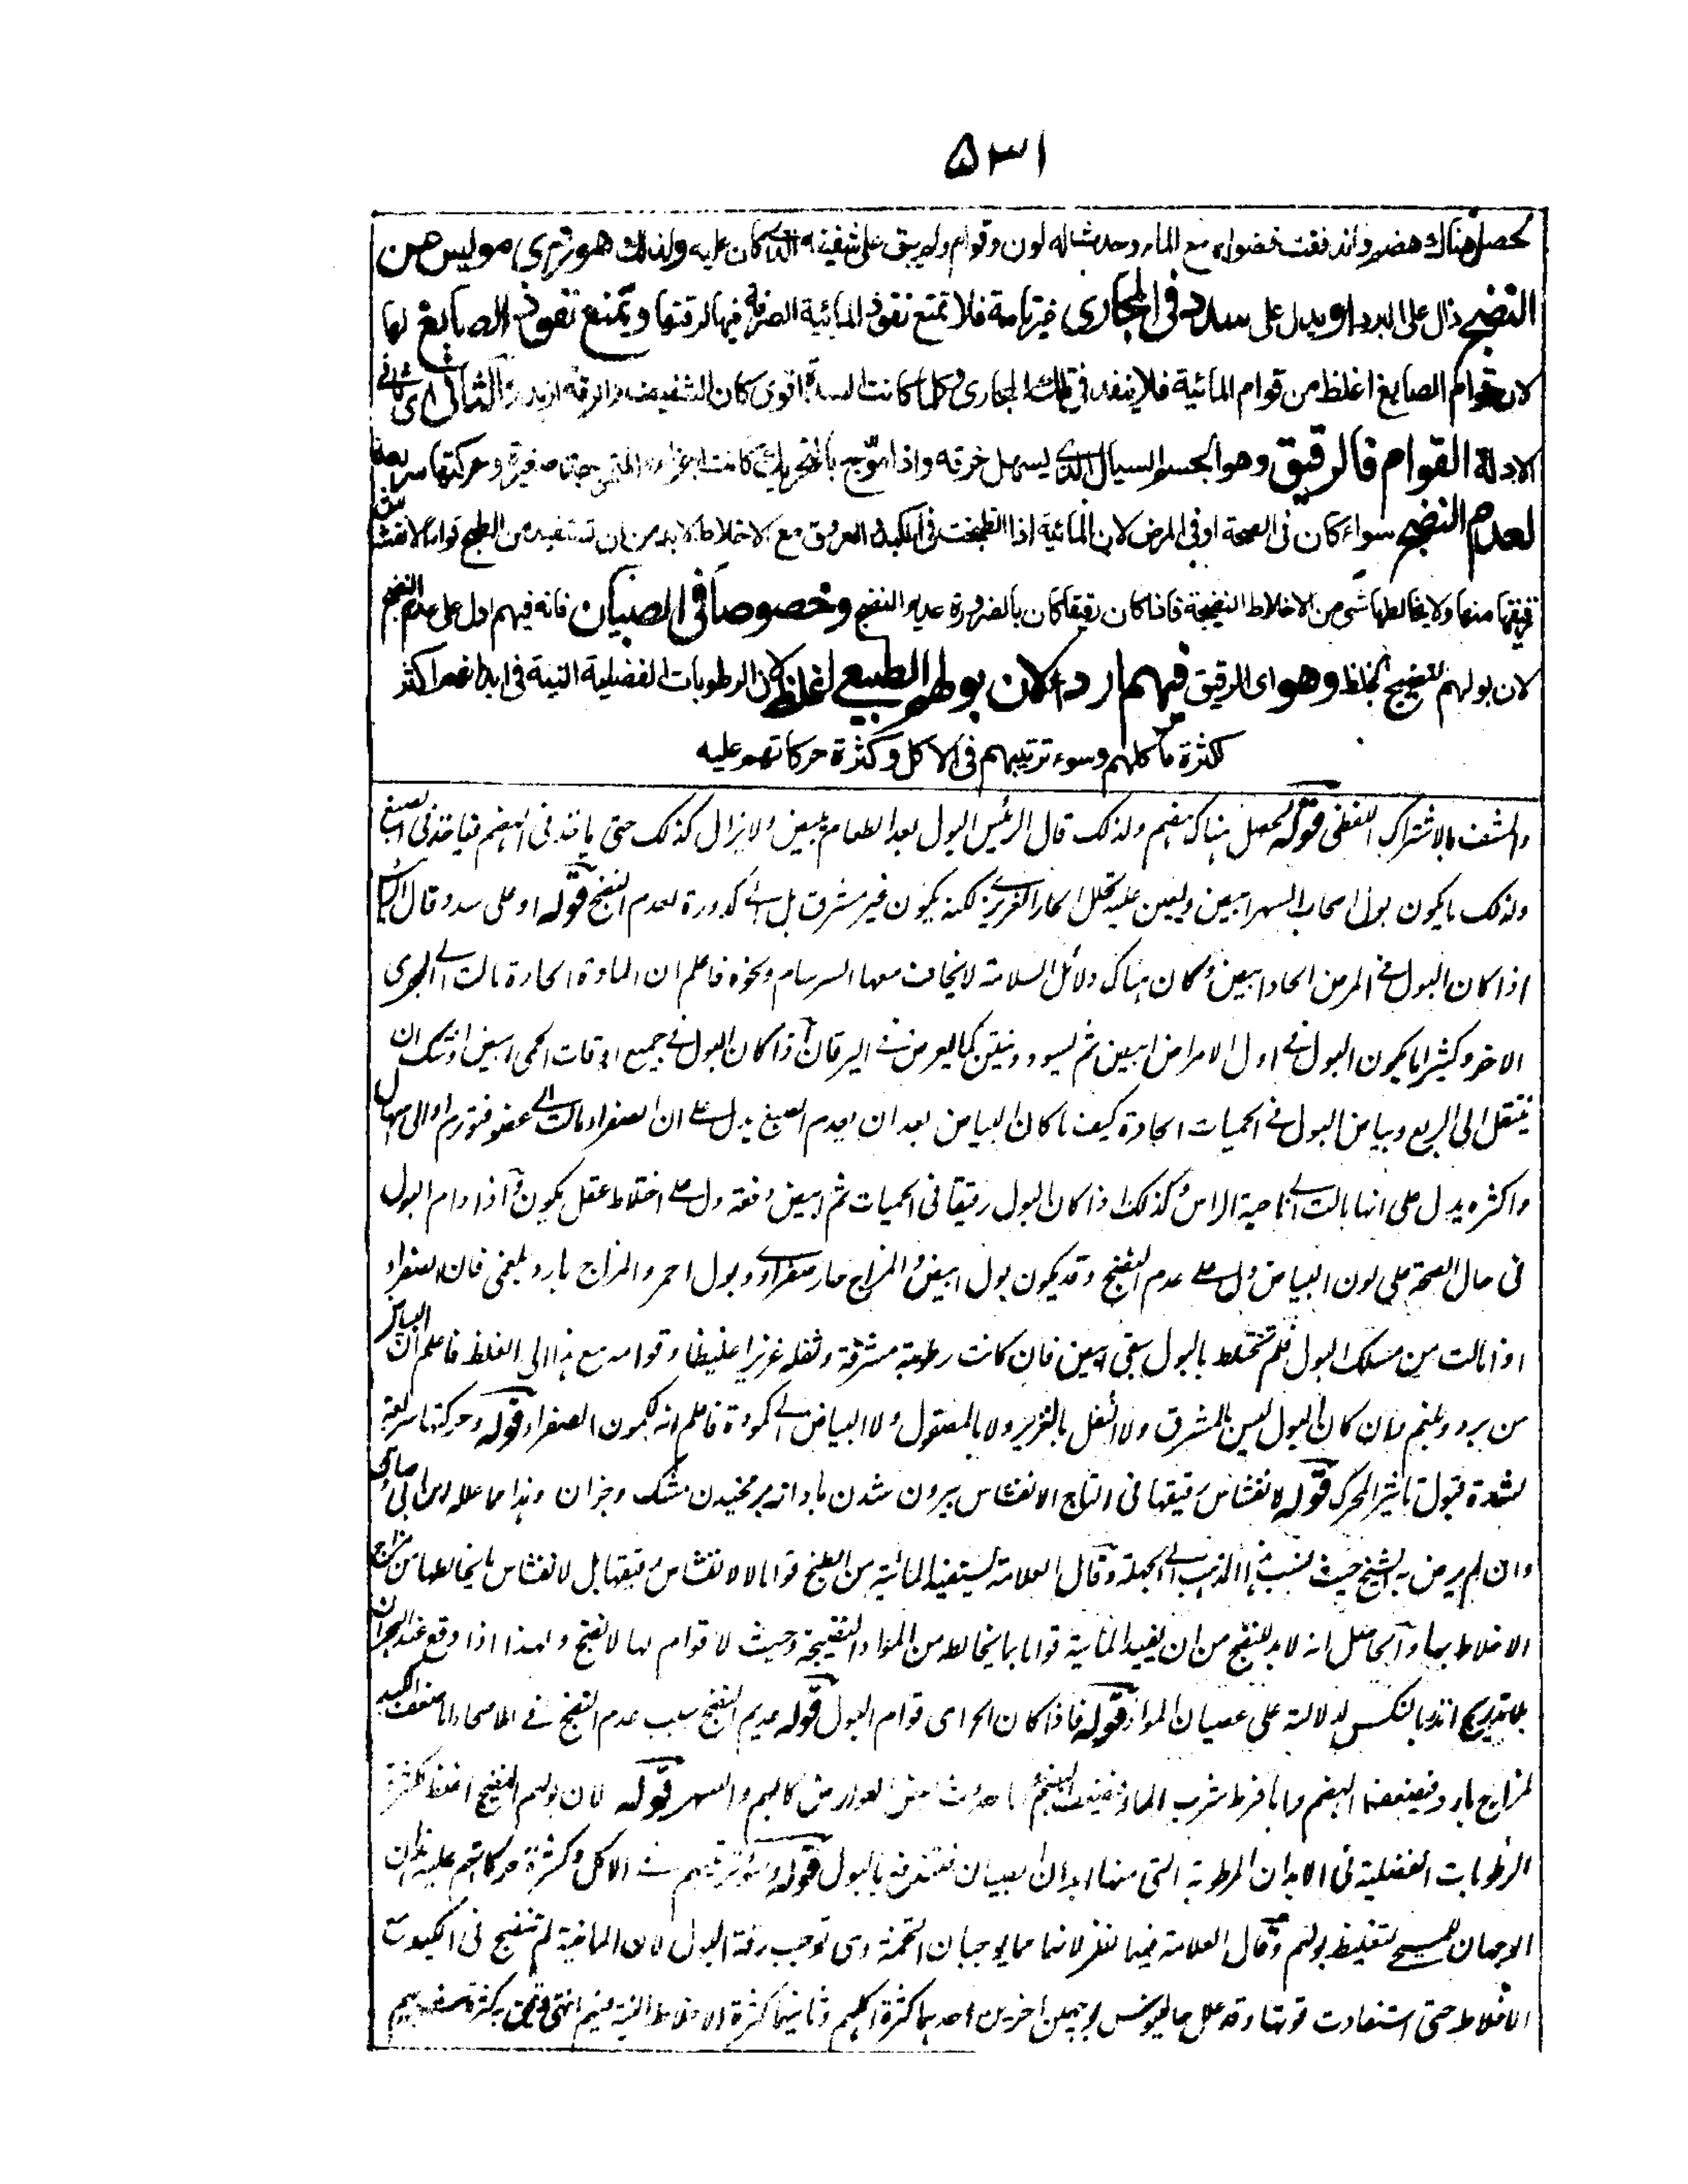 ۵۳۱
لحصل هناك هضم واندفعت فضوله مع الماء وحدث له لون وقوام ولم يبق على شفيفه الذى كان عليه ولذلك هو ردى موليس من
النضج دال على البرد او يدل على سدد فى المجارى غير تامة فلا تمنع نفوذ المائية الصرفة فيها لرقتها ويمنع نفوذ الصابغ لها
لان قوام الصابغ اغلظ من قوام المائية فلا ينفذ فى تلك المجارى وكلما كانت السدة اقوى كان الشفيف والرقة ازيد الثانى اى ثانى
الادلة القوام فالرقيق وهو الجسم السيال الذى يسهل خرقه واذا موج بالتحريك كانت اجزاءه صغيرة وحركتها سريعة
لعدم النضج سواء كان فى الصحة او فى المرض لان المائية اذا انطبخت فى الكبد والعروق مع الاخلاط لابد من ان تستفيد من الطبخ قواما لانفشاش
رقيقها منها ولا يخالطها شى من الاخلاط النضيجة فاذا كان رقيقا كان بالضرورة عديم النضج وخصوصا فى الصبيان فانه فيهم ادل على عدم النضج
لان بولهم النضيج غلظ وهو اى الرقيق فيهم اردء لان بولهم الطبيعى اغلظ لان الرطوبات الفضلية النية فى ابدانهم اكثر
لكثرة ماكلهم وسوء ترتيبهم فى الاكل وكثرة حركاتهم عليه
والمشف بالاشتراك اللفظى قوله لحصل هناك هضم ولذلك قال الرئيس البول بعد الطعام يبيض ولا يزال كذلك حتى ياخذ فى الهضم فياخذ فى الصبغ
ولذلك ما يكون بول اصحاب السهر ابيض ويعين عليه تحلل الحار الغريزى لكنه يكون غير مشرق بل الى كدورة لعدم النضج قوله او على سدد وقال
اذا كان البول فى المرض الحاد ابيض وكان هناك دلائل السلامة لا يخاف معها السرسام ونحوه فاعلم ان المادة الحارة مالت الى المجرى
الاخر وكثيرا ما يكون البول فى اول الامراض ابيض ثم يسود وينتن كما يعرض فى اليرقان اذا كان البول فى جميع اوقات الحمى ابيض اوشك ان
ينتقل الى الربع وبياض البول فى الحميات الحادة كيف ما كان البياض بعد ان يعدم الصبغ يدل على ان الصفراء مالت الى عضو فتورم او الى اسهال
واكثره يدل على انها مالت الى ناحية الراس وكذلك اذا كان البول رقيقا فى الحميات ثم ابيض دفعة دل على اختلاط عقل يكون واذا دام البول
فى حال الصحة على لون البياض دل على عدم النضج وقد يكون بول ابيض والمزاج حار صفراوى وبول احمر والمزاج بارد بلغمى فان الصفراء
اذا مالت من مسلك البول فلم تختلط بالبول بقى ابيض فان كانت رطوبة مشرقة وثفله غزيرا غليظا وقوامه مع هذا الى الغلظ فاعلم ان البياض
من برد وبلغم وان كان البول ليس بالمشرق ولا الثفل بالغزير ولا بالمفصول ولا البياض الى كمودة فاعلم انه لكمون الصفراء قوله وحركتها سريعة
لشدة قبول تاثير المحرك قوله لانفشاش رقيقها فى التاج الانفشاش بيرون شدن باد از بر خيدن مشك وجزان وهذا مما علله
وان لم يرض به الشيخ حيث نسب هذا المذهب الى الجهلة وقال العلامة ليستفيد المائية من الطبخ قواما لا لانفشاش رقيقها بل لانفشاش ما يخالطها من
الاخلاط بها والحاصل انه لابد للنضج من ان يفيد المائية قواما بما يخالطه من المواد النضيجة وحيث لا قوام لها لا نضج ولهذا اذا وقع عند البحران
بلا تدريج انذر بالنكس لدلالته على عصيان المواد قوله فاذا كان الخ اى قوام البول قوله عديم النضج سبب عدم النضج فى الاصحاء اما ضعف الكبد
لمزاج بارد فيضعف الهضم واما فرط شرب الماء واما حدوث بعض العوارض كالهم والسهر قوله لان بولهم النضيج اغلظ لكثرة
الرطوبات الفضلية فى الابدان المرطوبة التى منها ابدان الصبيان فتندفع بالبول قوله وسوء ترتيبهم فى الاكل وكثرة حركاتهم عليه
الوجهان لتغليظ بولهم وقال العلامة فيهما نظر لانهما مما يوجبان التخمة وهى توجب رقة البول لان المائية لم تنضج فى الكبد مع
الاخلاط حتى استفادت قوتها وقد علل جالينوس بوجهين اخرين احدهما كثرة اكلهم وثانيهما كثرة الاخلاط النية فيهم انتهى